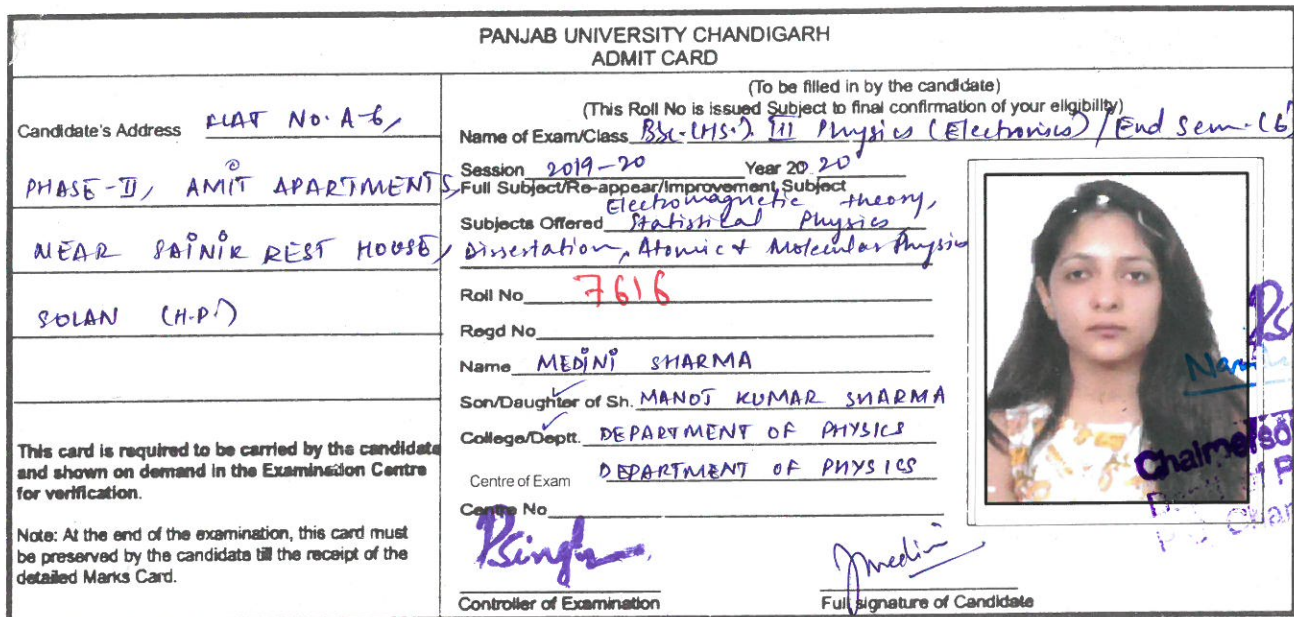 PANJAB UNIVERSITY CHANDIGARH
ADMIT CARD
Candidate's Address FLAT NO. A-6,
PHASE-II, AMIT APARTMENTS,
NEAR SAINIK REST HOUSE,
SOLAN (H.P.)
This card is required to be carried by the candidate
and shown on demand in the Examination Centre
for verification.
Note: At the end of the examination, this card must
be preserved by the candidate till the receipt of the
detailed Marks Card.
(To be filled in by the candidate)
(This Roll No is issued Subject to final confirmation of your eligibility)
Name of Exam/Class BSc.(HS.) III Physics (Electronics) / End Sem. (6
Session 2019-20 Year 20 20
Full Subject/Re-appear/Improvement Subject
Electromagnetic theory,
Subjects Offered Statistical Physics,
Dissertation, Atomic & Molecular Physics
Roll No 7616
Regd No
Name MEDINI SHARMA
Son/Daughter of Sh. MANOJ KUMAR SHARMA
College/Deptt. DEPARTMENT OF PHYSICS
Centre of Exam DEPARTMENT OF PHYSICS
Centre No
PSingh
Controller of Examination
Medini
Full signature of Candidate